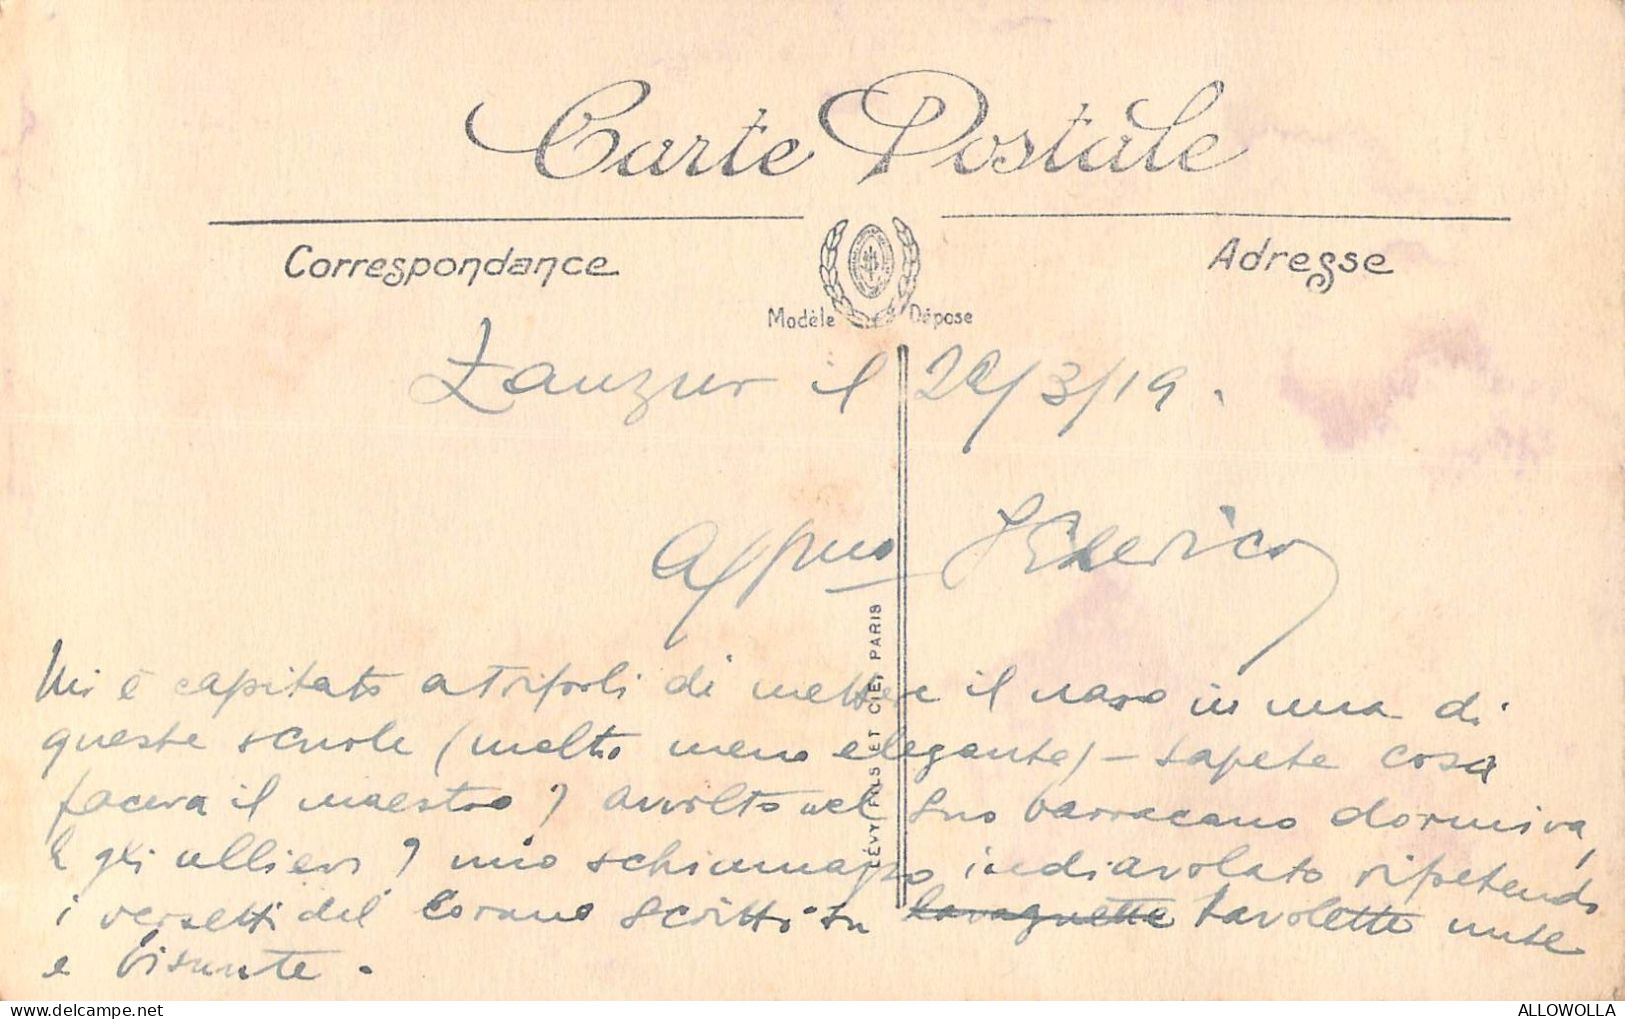 Carte Postale
Correspondance
Adresse
Modèle Dépose
Zanzur il 20/3/19.
Affmo Federico
LÉVY FILS ET CIE, PARIS
Mi è capitato a Tripoli di mettere il naso in una di
queste scuole (molto meno elegante) - sapete cosa
faceva il maestro? avvolto nel suo barracano dormiva,
e gli allievi? uno schiamazzo indiavolato ripetendo
i versetti del Corano scritti su tavolette unte
e bisunte.
ALLOWOLLA